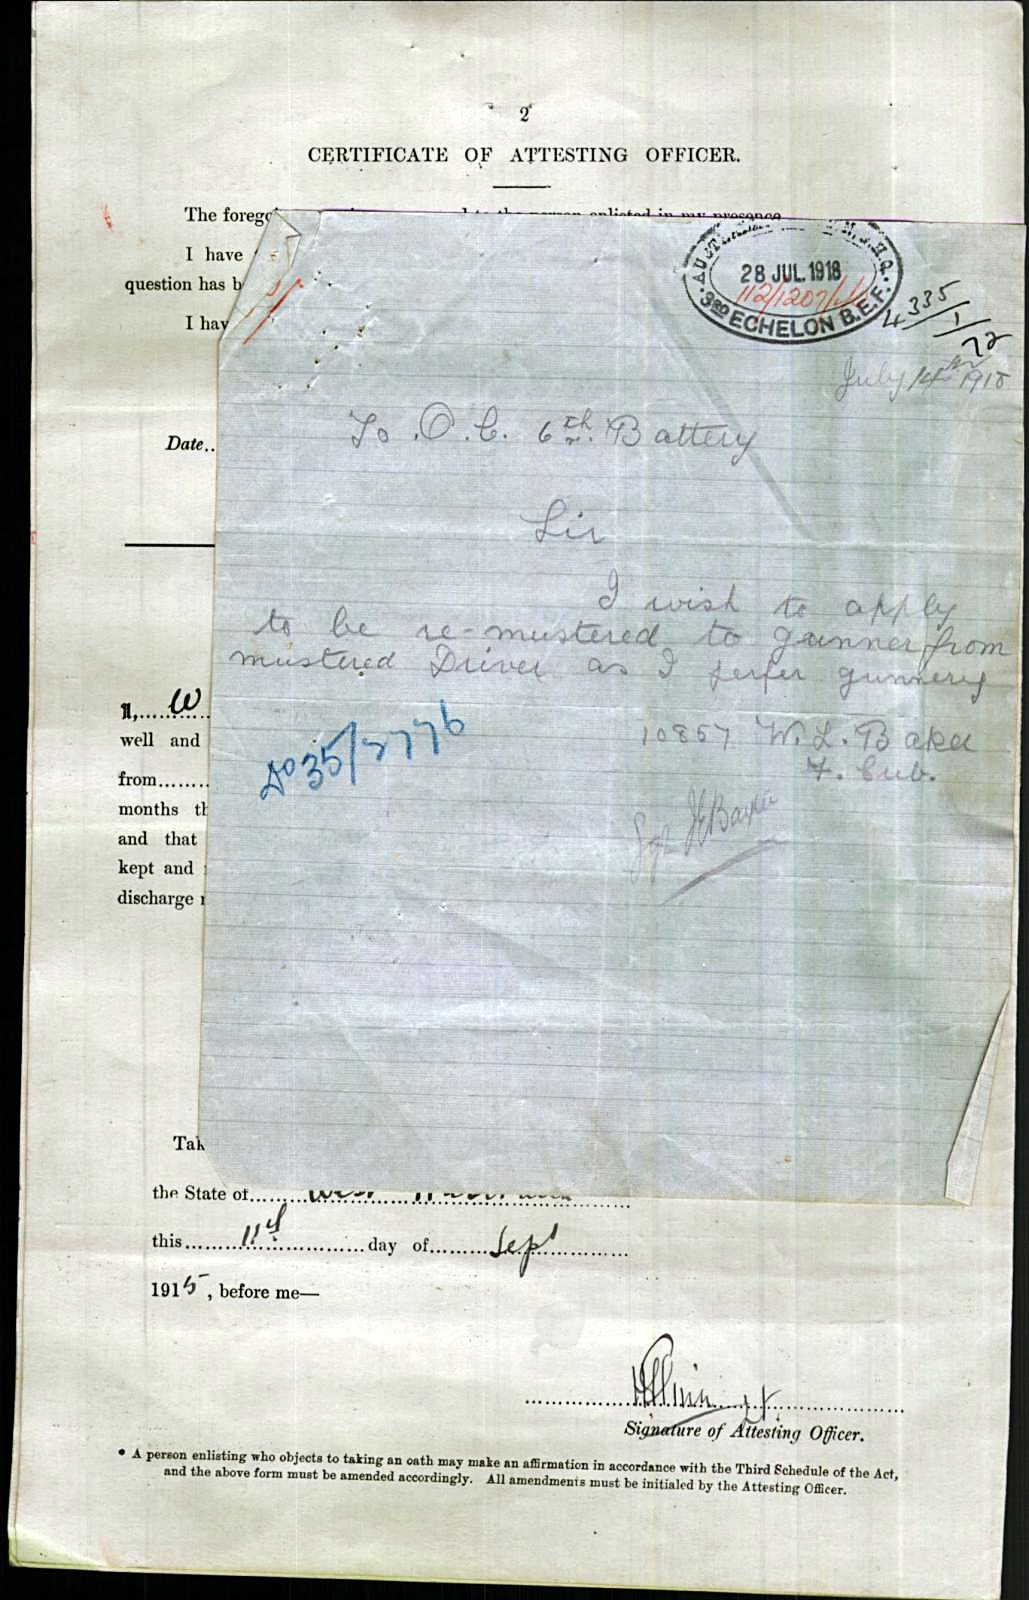 2
CERTIFICATE OF ATTESTING OFFICER.
The forego to the person enlisted in my presence
I have
question has b
I hav
28 JUL. 1918
112/1207/
3RD ECHELON B.E.F.
4335/1/72
July 14th 1918
Date..
To . O. C. 6th Battery
Sir
I wish to apply
to be re-mustered to gunner from
mustered Driver as I perfer gunnery
10857 W. L. Baker
F. Sub.
35/7776
I,..... W
well and
from.......
months th
and that
kept and
discharge
Tak
the State of........West Australia
this......11th......day of......Sept
1915, before me—
Signature of Attesting Officer.
* A person enlisting who objects to taking an oath may make an affirmation in accordance with the Third Schedule of the Act,
and the above form must be amended accordingly. All amendments must be initialed by the Attesting Officer.